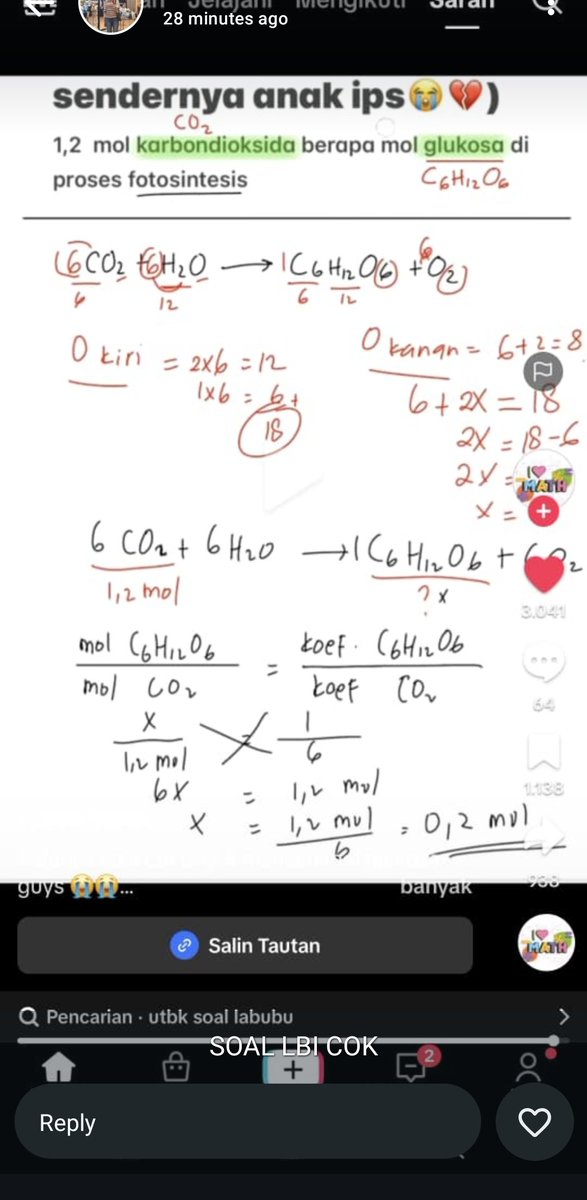 28 minutes ago
sendernya anak ips😭💔)
CO2
1,2 mol karbondioksida berapa mol glukosa di
proses fotosintesis
C6H12O6
6CO2 + 6H2O → 1C6H12O6 + 6O2
6 12 6 12
O kiri = 2x6 = 12
1x6 = 6 +
18
O kanan = 6+2=8
6+2x = 18
2x = 18-6
2x =
x =
6 CO2 + 6 H2O → 1 C6H12O6 + 6O2
1,2 mol
? x
mol C6H12O6 = koef. C6H12O6
mol CO2 koef CO2
x 1
1,2 mol 6
6x = 1,2 mol
x = 1,2 mol = 0,2 mol
6
I ❤ MATH
3.041
64
1.138
938
guys 😭😭...
banyak
Salin Tautan
I ❤ MATH
Pencarian · utbk soal labubu
SOAL LBI COK
2
Reply